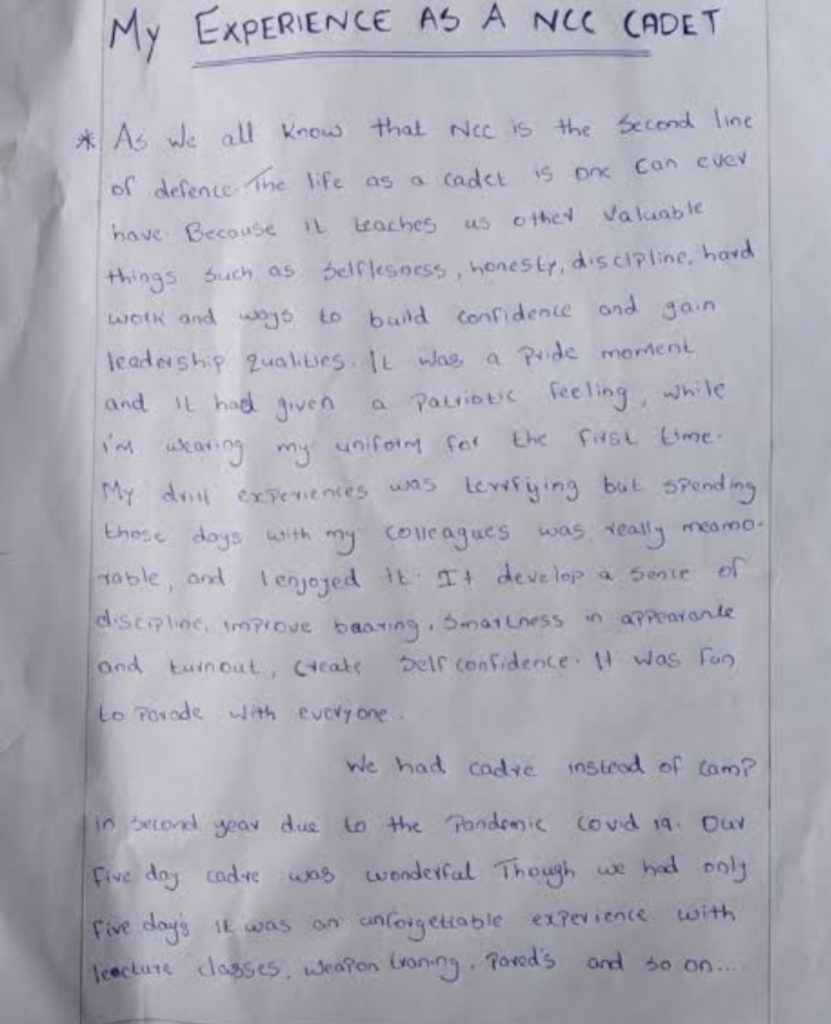 My EXPERIENCE AS A NCC CADET
* As we all know that NCC is the second line
of defence. The life as a cadet is one can ever
have Because it teaches us other valuable
things such as selflesness, honesty, discipline, hard
work and ways to build confidence and gain
leadership qualities. It was a pride moment
and it had given a patriotic feeling, while
i'm wearing my uniform for the first time.
My drill experiences was terrifying but spending
those days with my colleagues was really meamo-
rable, and I enjoyed it. It develop a sense of
discipline, improve bearing, smartness in appearance
and turnout, create self confidence. It was fun
to parade with everyone.
We had cadre instead of camp
in second year due to the pandemic covid 19. Our
five day cadre was wonderful Though we had only
five day's it was an unforgettable experience with
leacture classes, weapon traning, pared's and so on....